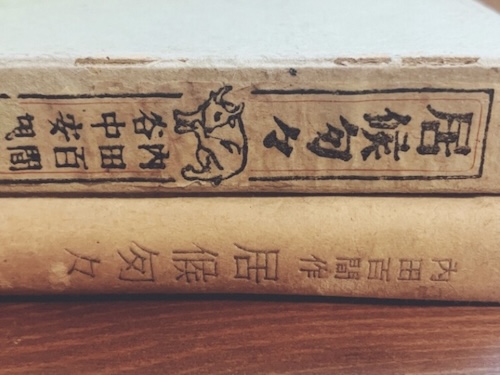 居候匆々
内田百間
谷中安規
内田百間作 居候匆々